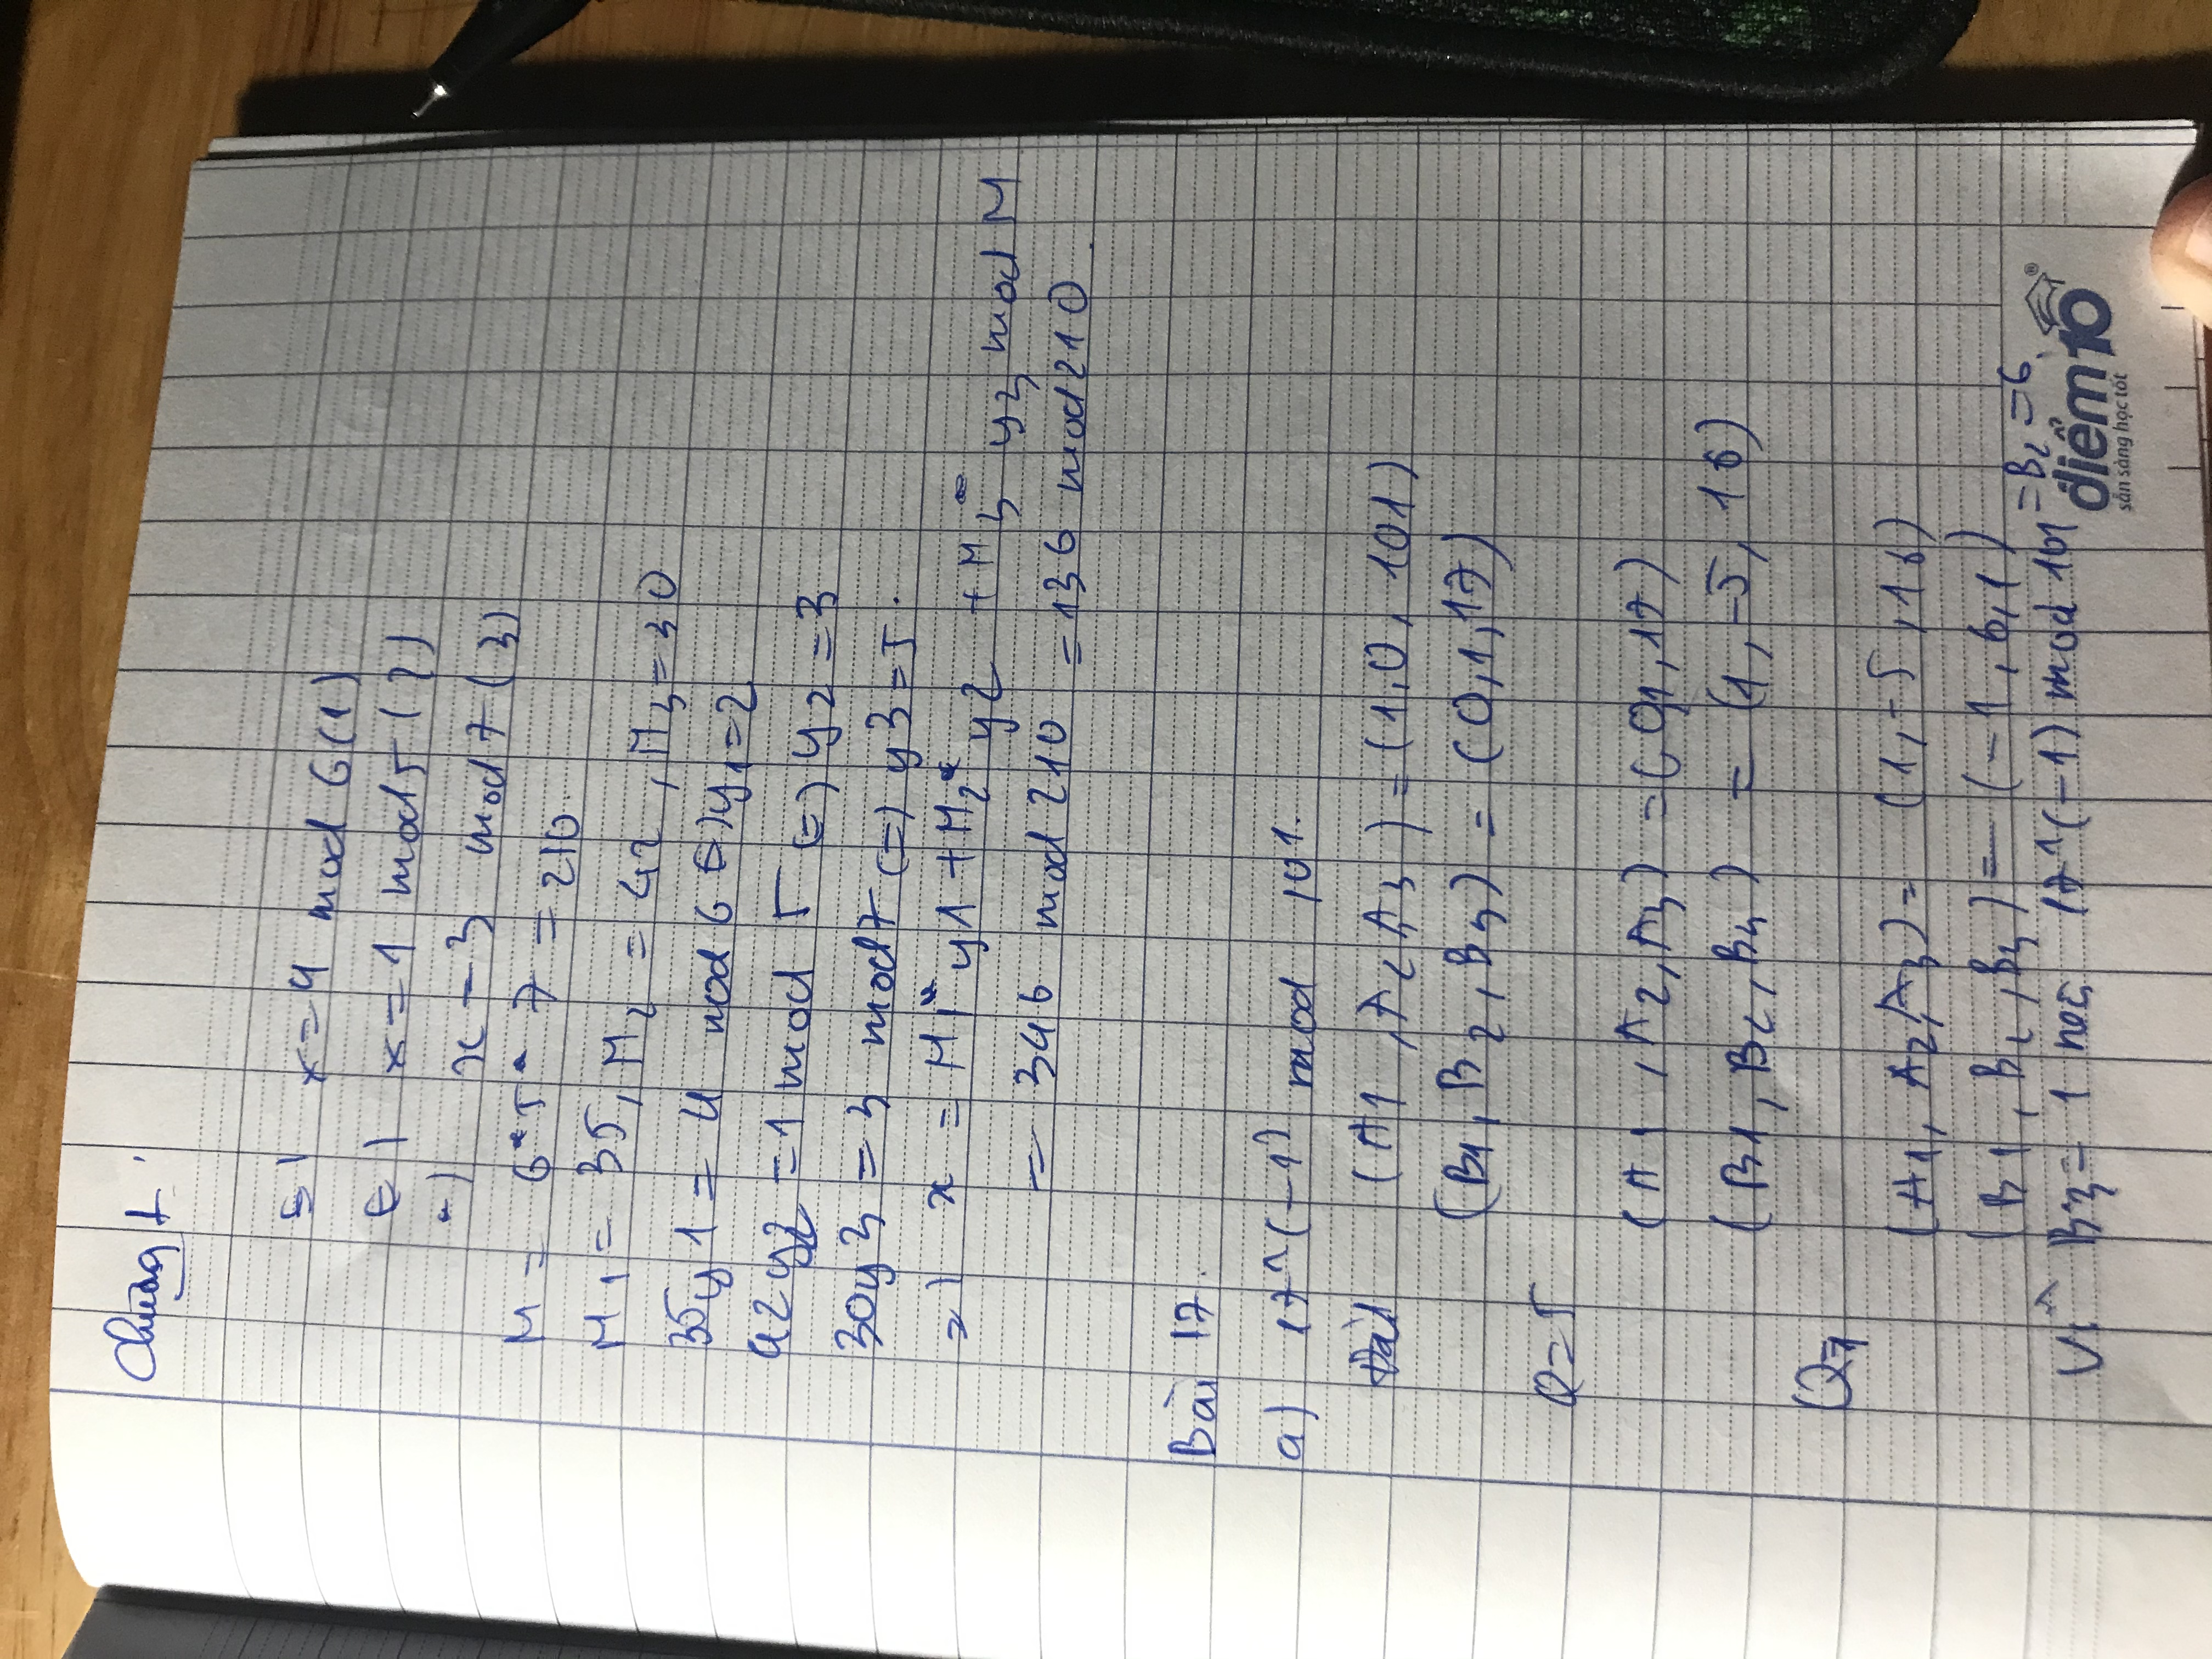 Chương 1
5) x = 4 mod 6 (1)
6) x = 1 mod 5 (2)
x = 3 mod 7 (3)
M = 6 * 5 * 7 = 210
M1 = 35, M2 = 42, M3 = 30
35y1 = 4 mod 6 (=) y1 = 2
42y2 = 1 mod 5 (=) y2 = 3
30y3 = 3 mod 7 (=) y3 = 5.
=) x = M1 * y1 + M2 * y2 + M3 * y3 mod M
= 346 mod 210 = 136 mod 210.
Bài 17.
a) 17^(-1) mod 101.
Đặt (A1, A2, A3) = (1, 0, 101)
(B1, B2, B3) = (0, 1, 17)
Q = 5
(A1, A2, A3) = (0, 1, 17)
(B1, B2, B3) = (1, -5, 16)
Q = 1
(A1, A2, A3) = (1, -5, 16)
(B1, B2, B3) = (-1, 6, 1)
Vì B3 = 1 nên 17^(-1) mod 101 = B2 = 6.
điểm 10
sẵn sàng học tốt